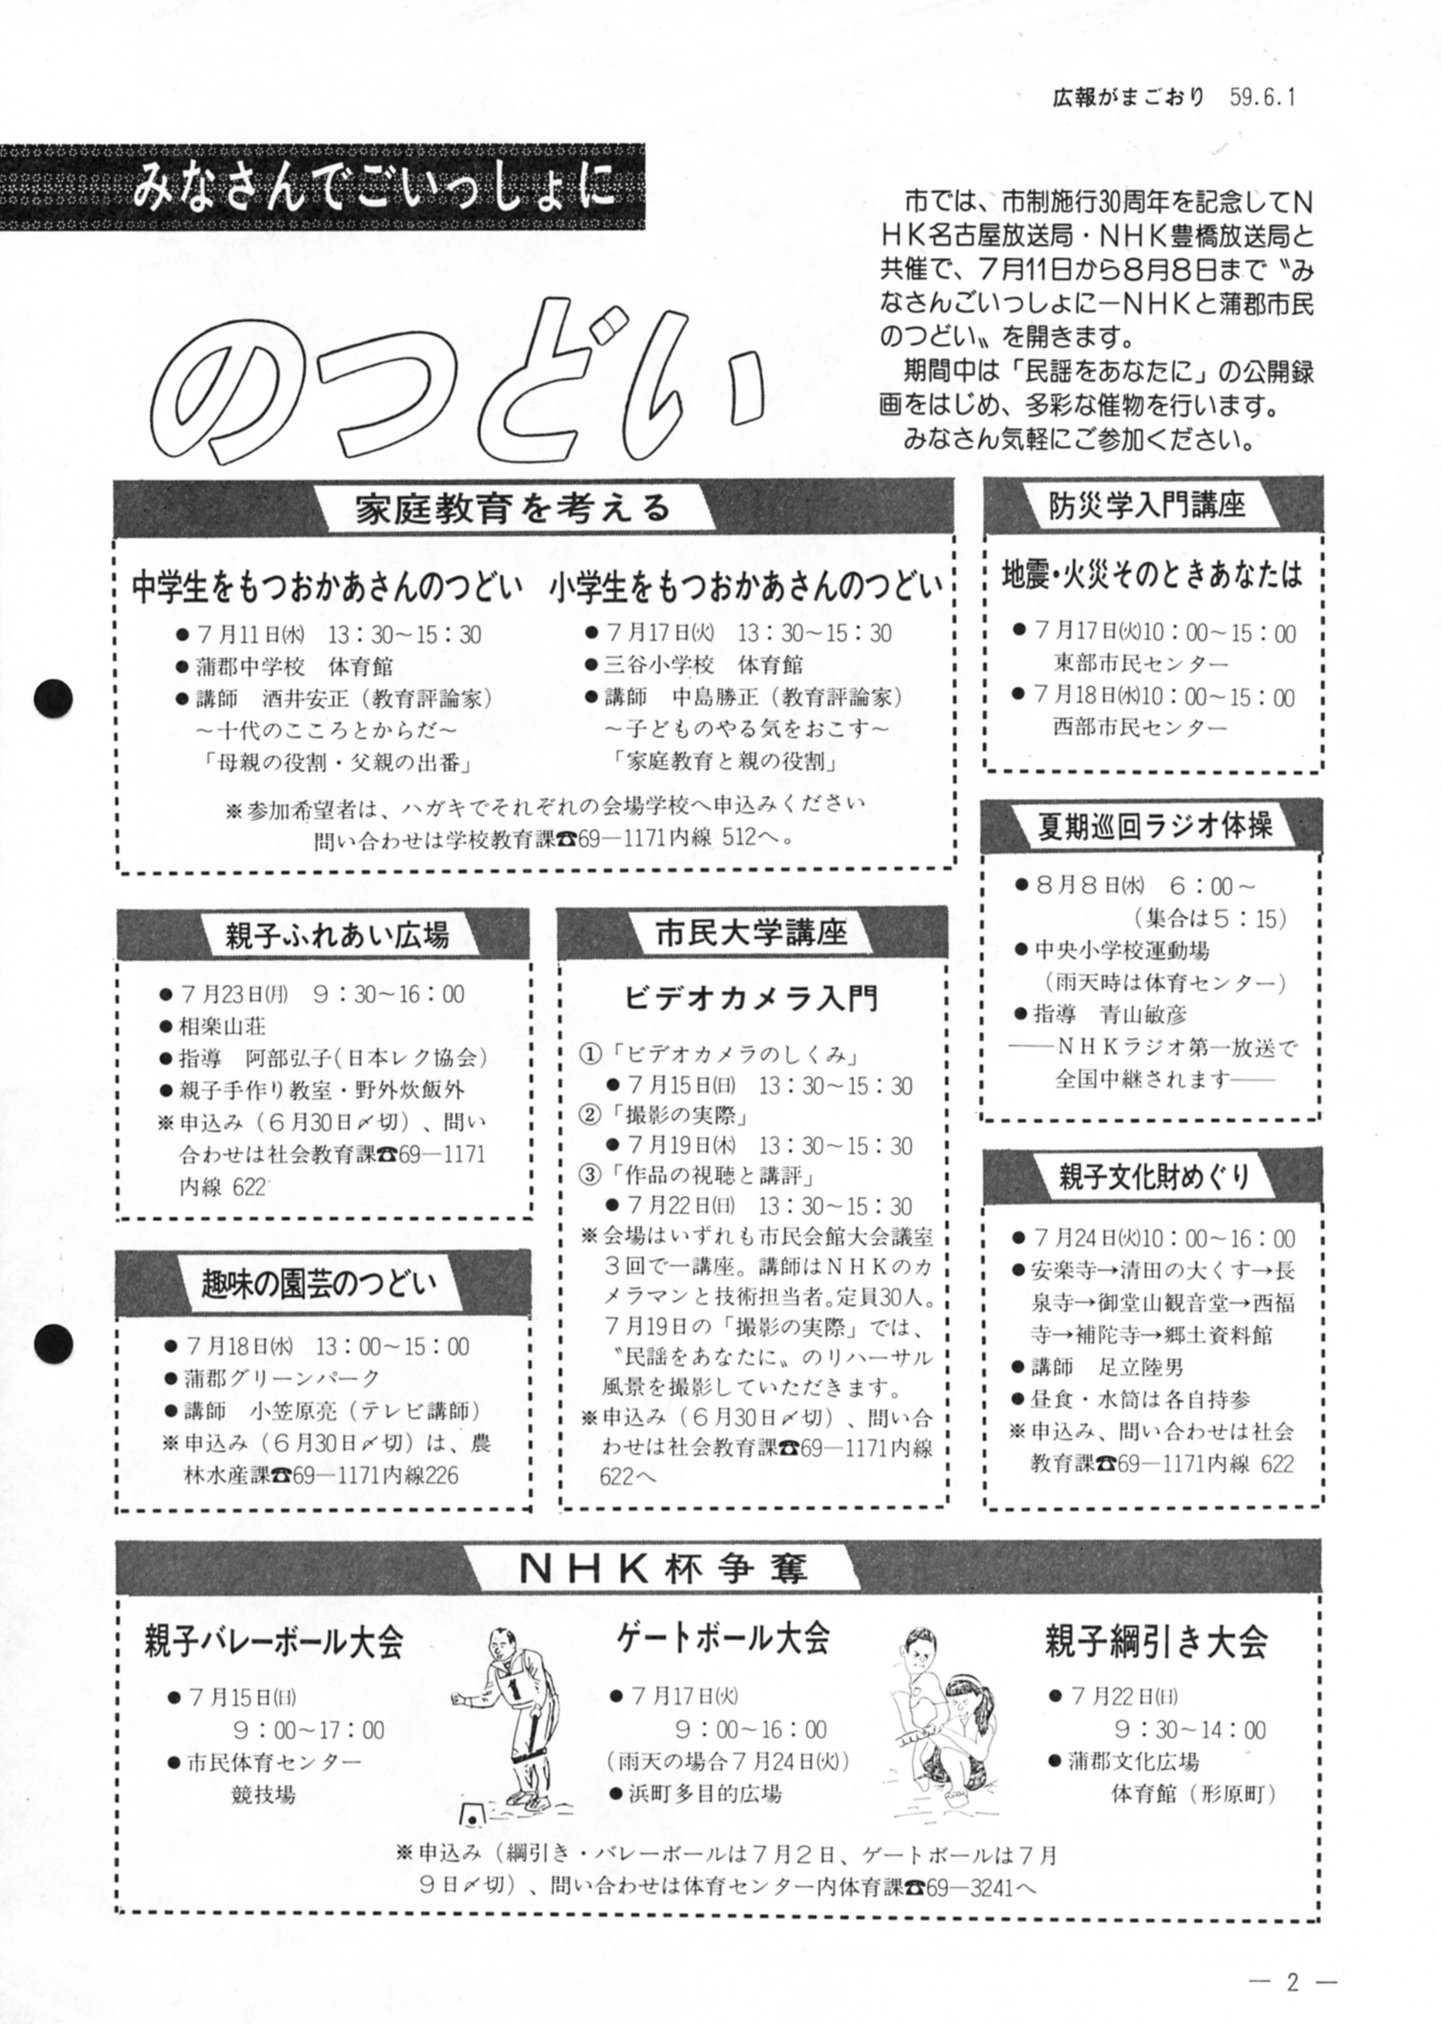 広報がまごおり 59.6.1
みなさんでごいっしょに
のつどい
市では、市制施行30周年を記念してN
HK名古屋放送局・NHK豊橋放送局と
共催で、7月11日から8月8日まで〝み
なさんごいっしょに―NHKと蒲郡市民
のつどい〟を開きます。
期間中は「民謡をあなたに」の公開録
画をはじめ、多彩な催物を行います。
みなさん気軽にご参加ください。
家庭教育を考える
中学生をもつおかあさんのつどい
●7月11日㈬ 13:30~15:30
●蒲郡中学校 体育館
●講師 酒井安正(教育評論家)
~十代のこころとからだ~
「母親の役割・父親の出番」
小学生をもつおかあさんのつどい
●7月17日㈫ 13:30~15:30
●三谷小学校 体育館
●講師 中島勝正(教育評論家)
~子どものやる気をおこす~
「家庭教育と親の役割」
※参加希望者は、ハガキでそれぞれの会場学校へ申込みください
問い合わせは学校教育課☎69―1171内線 512へ。
防災学入門講座
地震・火災そのときあなたは
●7月17日㈫10:00~15:00
東部市民センター
●7月18日㈬10:00~15:00
西部市民センター
夏期巡回ラジオ体操
●8月8日㈬ 6:00~
(集合は5:15)
●中央小学校運動場
(雨天時は体育センター)
●指導 青山敏彦
――NHKラジオ第一放送で
全国中継されます――
親子ふれあい広場
●7月23日㈪ 9:30~16:00
●相楽山荘
●指導 阿部弘子(日本レク協会)
●親子手作り教室・野外炊飯外
※申込み(6月30日〆切)、問い
合わせは社会教育課☎69―1171
内線 622
市民大学講座
ビデオカメラ入門
①「ビデオカメラのしくみ」
●7月15日㈰ 13:30~15:30
②「撮影の実際」
●7月19日㈭ 13:30~15:30
③「作品の視聴と講評」
●7月22日㈰ 13:30~15:30
※会場はいずれも市民会館大会議室
3回で一講座。講師はNHKのカ
メラマンと技術担当者。定員30人。
7月19日の「撮影の実際」では、
〝民謡をあなたに〟のリハーサル
風景を撮影していただきます。
※申込み(6月30日〆切)、問い合
わせは社会教育課☎69―1171内線
622へ
親子文化財めぐり
●7月24日㈫10:00~16:00
●安楽寺→清田の大くす→長
泉寺→御堂山観音堂→西福
寺→補陀寺→郷土資料館
●講師 足立陸男
●昼食・水筒は各自持参
※申込み、問い合わせは社会
教育課☎69―1171内線 622
趣味の園芸のつどい
●7月18日㈬ 13:00~15:00
●蒲郡グリーンパーク
●講師 小笠原亮(テレビ講師)
※申込み(6月30日〆切)は、農
林水産課☎69―1171内線226
NHK杯争奪
親子バレーボール大会
●7月15日㈰
9:00~17:00
●市民体育センター
競技場
1
ゲートボール大会
●7月17日㈫
9:00~16:00
(雨天の場合7月24日㈫)
●浜町多目的広場
親子綱引き大会
●7月22日㈰
9:30~14:00
●蒲郡文化広場
体育館(形原町)
※申込み(綱引き・バレーボールは7月2日、ゲートボールは7月
9日〆切)、問い合わせは体育センター内体育課☎69―3241へ
― 2 ―